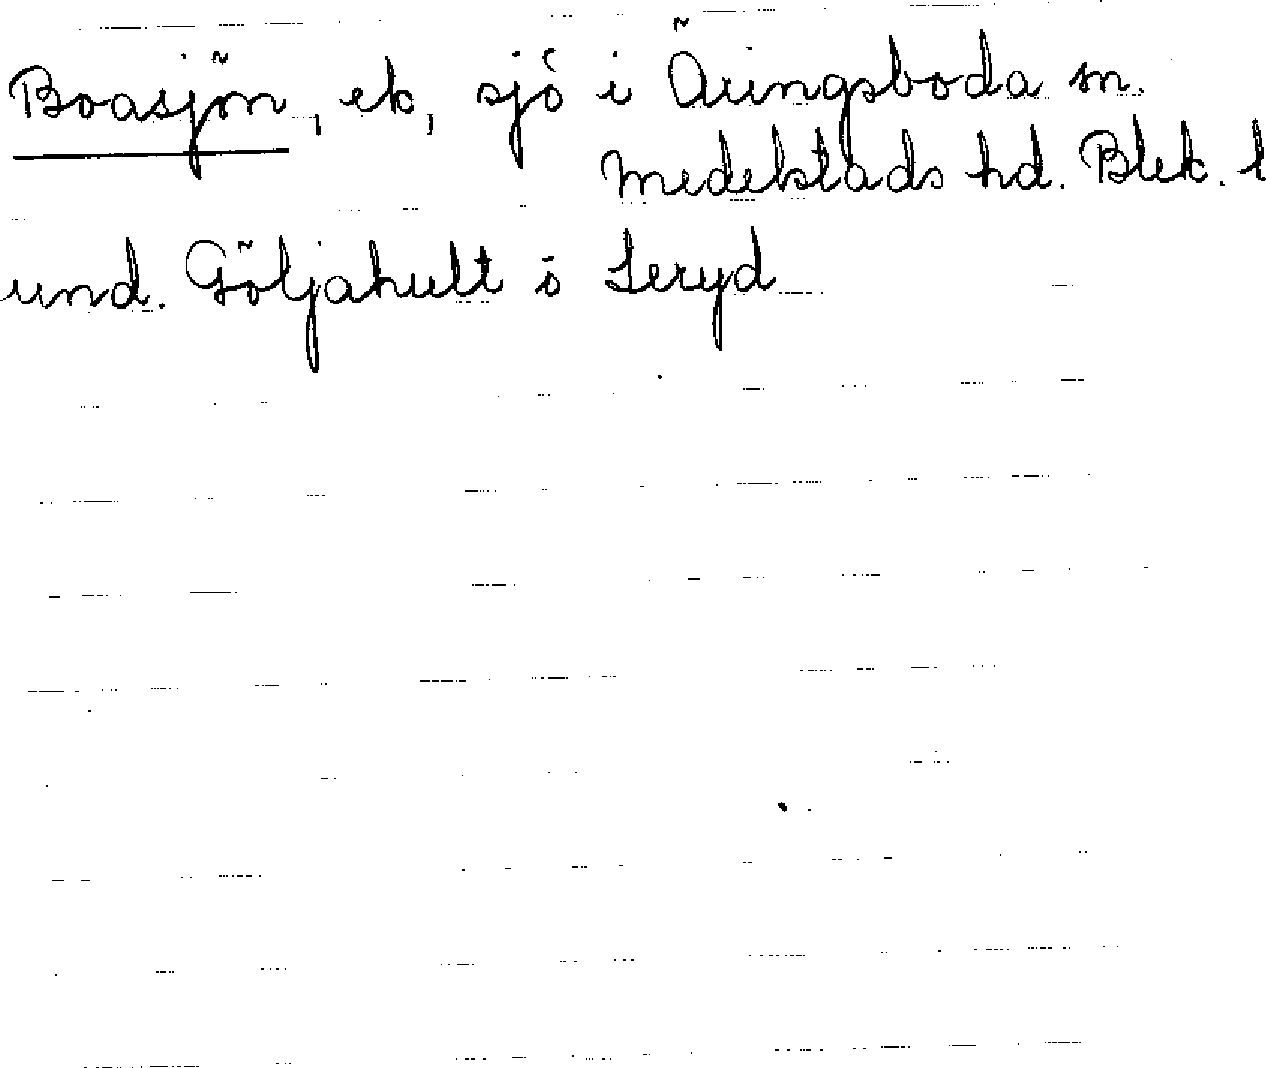 Boasjön, ek, sjö i Äringsboda sn.
Medelstads hd. Blek. l
und. Göljahult i Jeryd